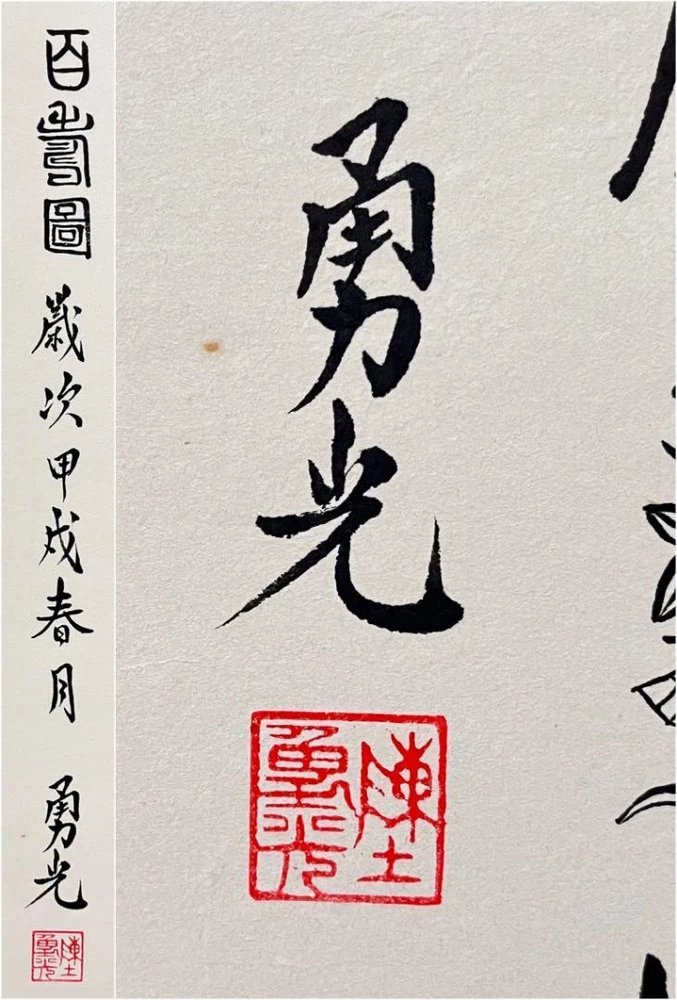 百壽圖 歲次甲戌春月 勇光
陳勇光
勇光
陳勇光